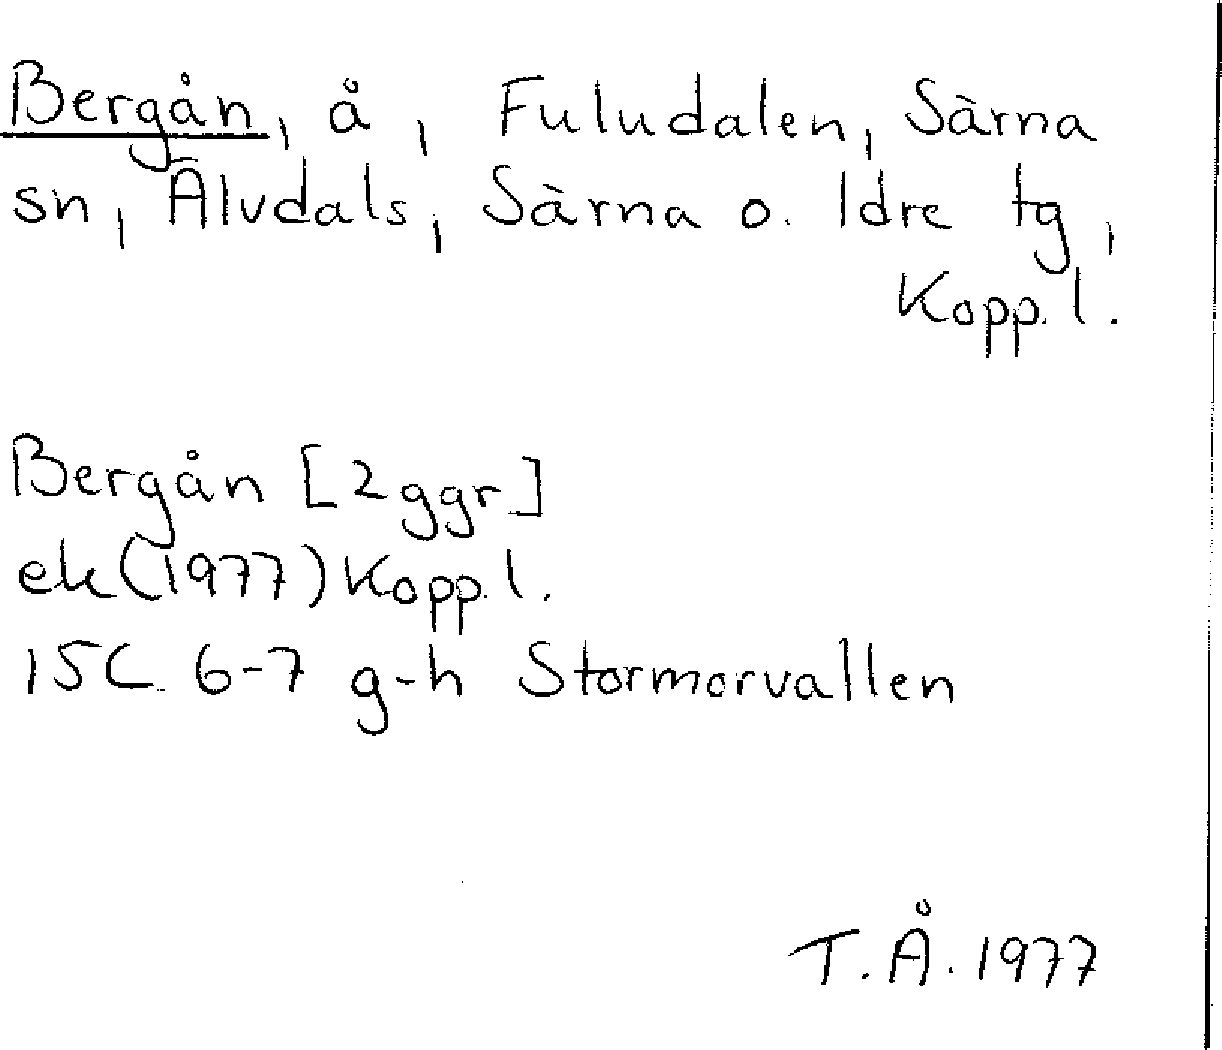 Bergån, å, Fuludalen, Särna
sn, Älvdals, Särna o. Idre tg,
Kopp. l.
Bergån [2 ggr]
ek (1977) Kopp. l.
15C 6-7 g-h Stormorvallen
T. Å. 1977